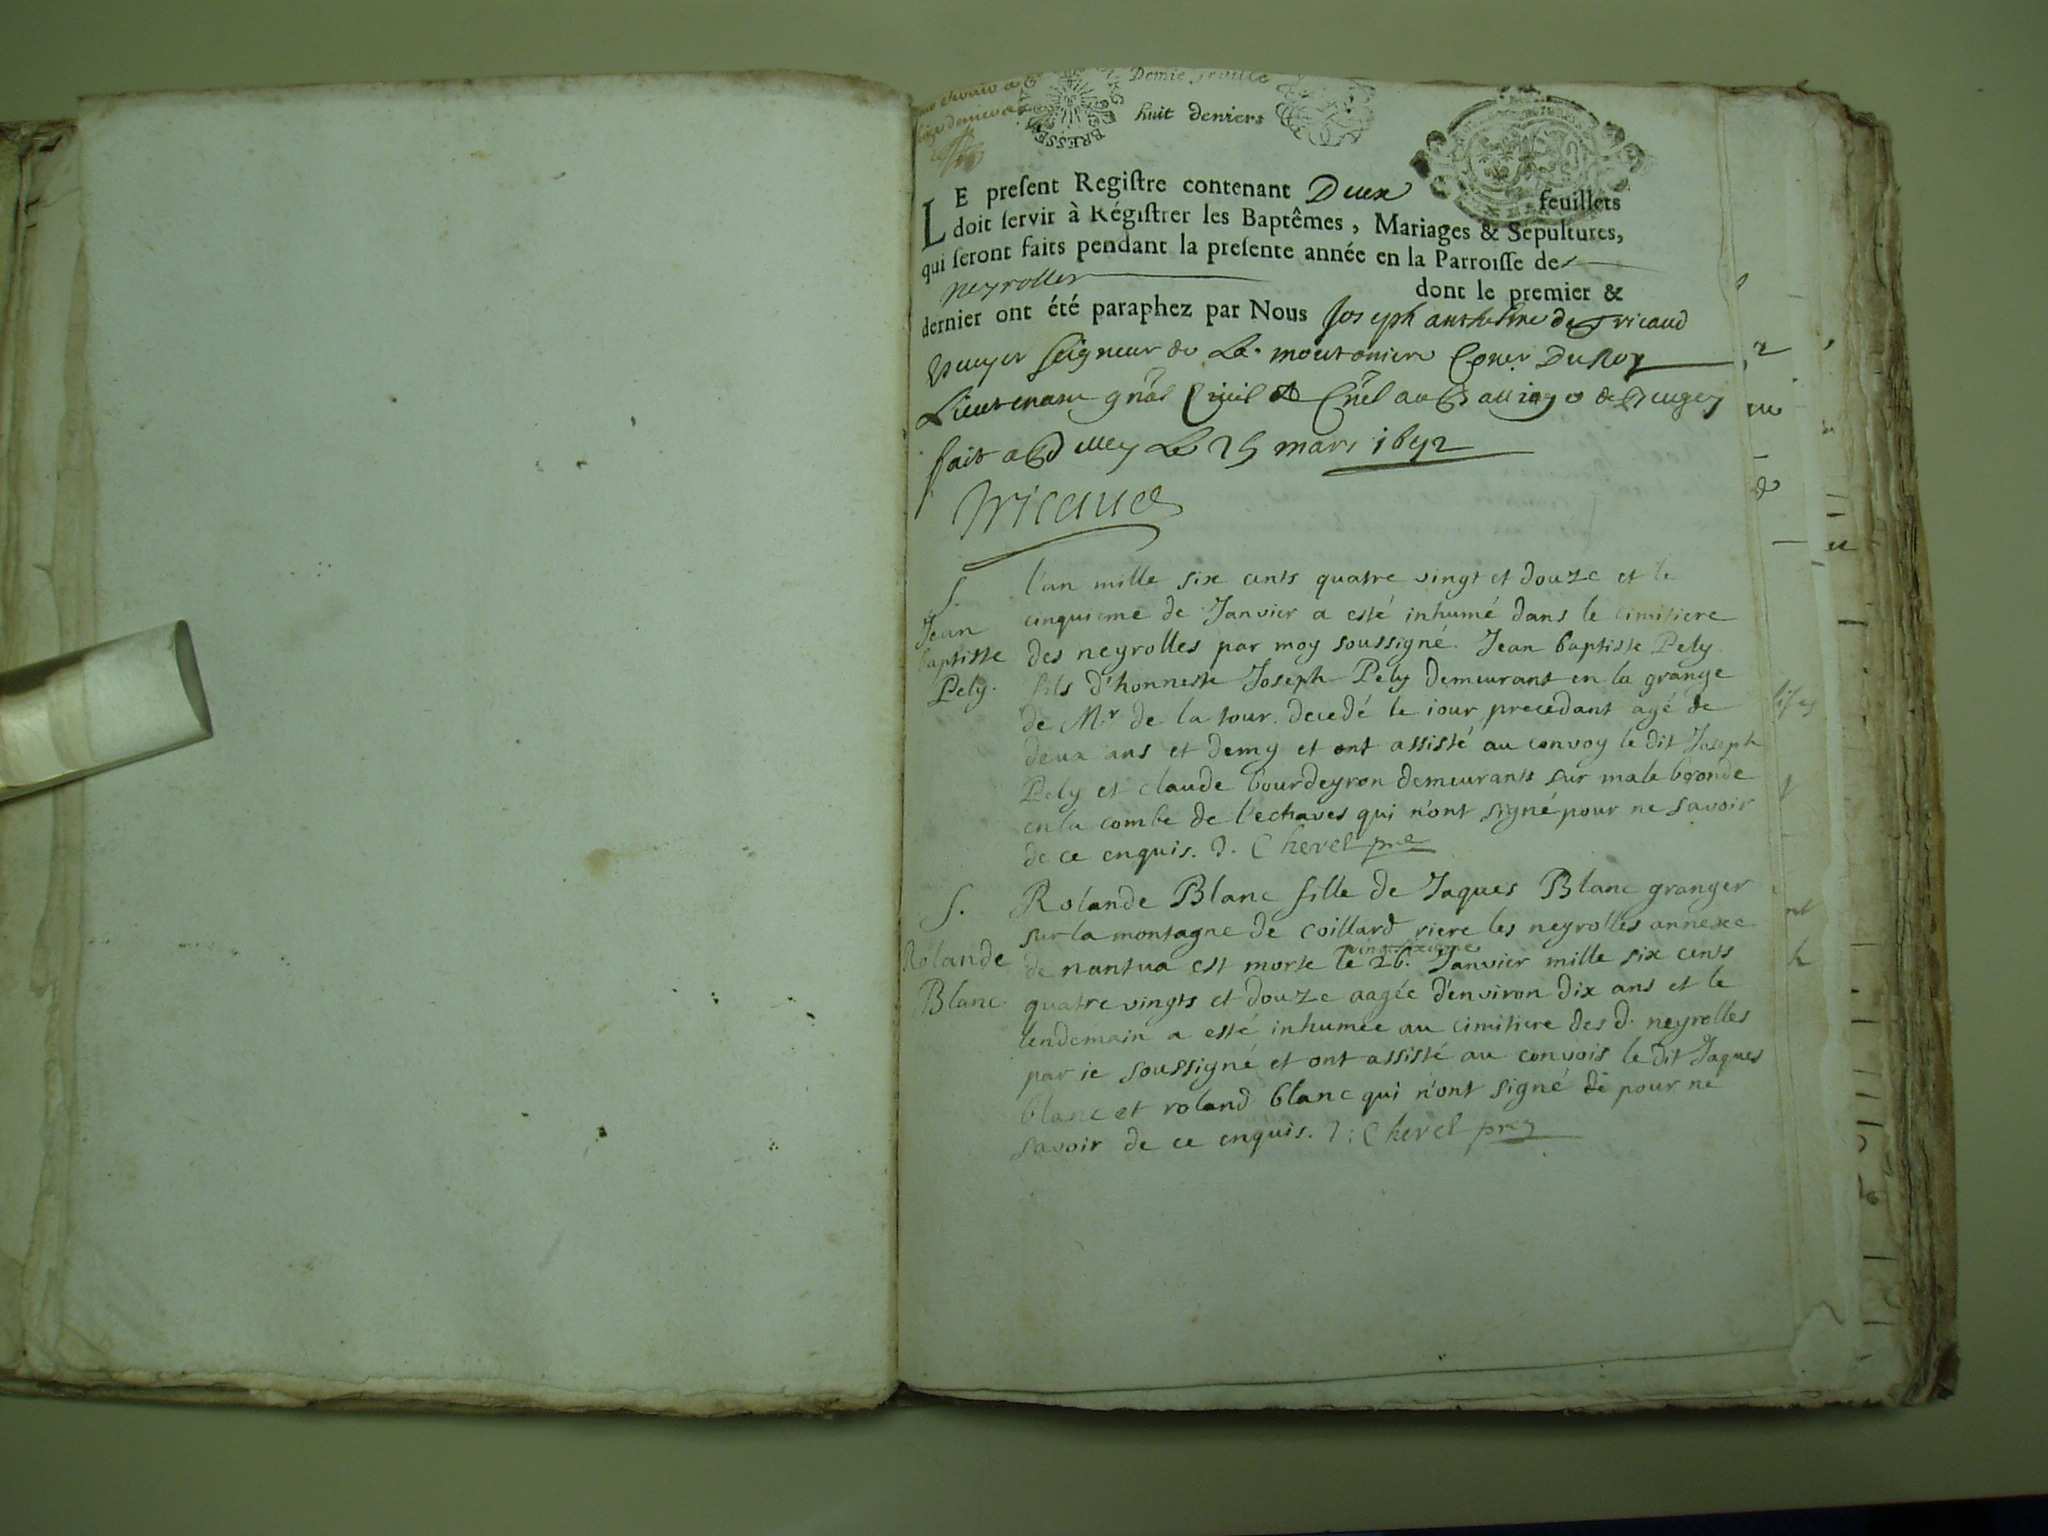 Demie feuille
huit deniers
BRESSE
LE preſent Regiſtre contenant Deux feuillets
doit ſervir à Régiſtrer les Baptêmes, Mariages & Sépultures,
qui ſeront faits pendant la preſente année en la Parroiſſe de
neyrolles dont le premier &
dernier ont été paraphez par Nous Joseph anthelme de Tricaud
Escuyer Seigneur de La moutoniere Coner. Du Roy
Lieutenant gñal Civil et Crĩel au Balliage de Bugey
fait a Belley Le 25 mars 1692
Tricaud
S. l'an mille six cents quatre vingt et douze et le
Jean cinquieme de Janvier a esté inhumé dans le cimitiere
baptiste des neyrolles par moy soussigné. Jean baptiste Pely
Pely. fils d'honneste Joseph Pely demeurant en la grange
de Mr. de la tour. decedé le iour precedant agé de
deux ans et demy et ont assisté au convoy le dit Joseph
Pely et claude bourdeyron demeurants sur male bronde
en la combe de l'echaves qui n'ont signé pour ne savoir
de ce enquis. D. Chevel pre
S. Rolande Blanc fille de Jaques Blanc granger
sur la montagne de coillard riere les neyrolles annexe
Rolande de nantua est morte le 26. vingt sixieme Janvier mille six cents
Blanc. quatre vingts et douze aagée d'environ dix ans et le
lendemain a esté inhumée au cimitiere des d. neyrolles
par ie soussigné et ont assisté au convois le dit Jaques
blanc et roland blanc qui n'ont signé de pour ne
savoir de ce enquis. D: Chevel pre